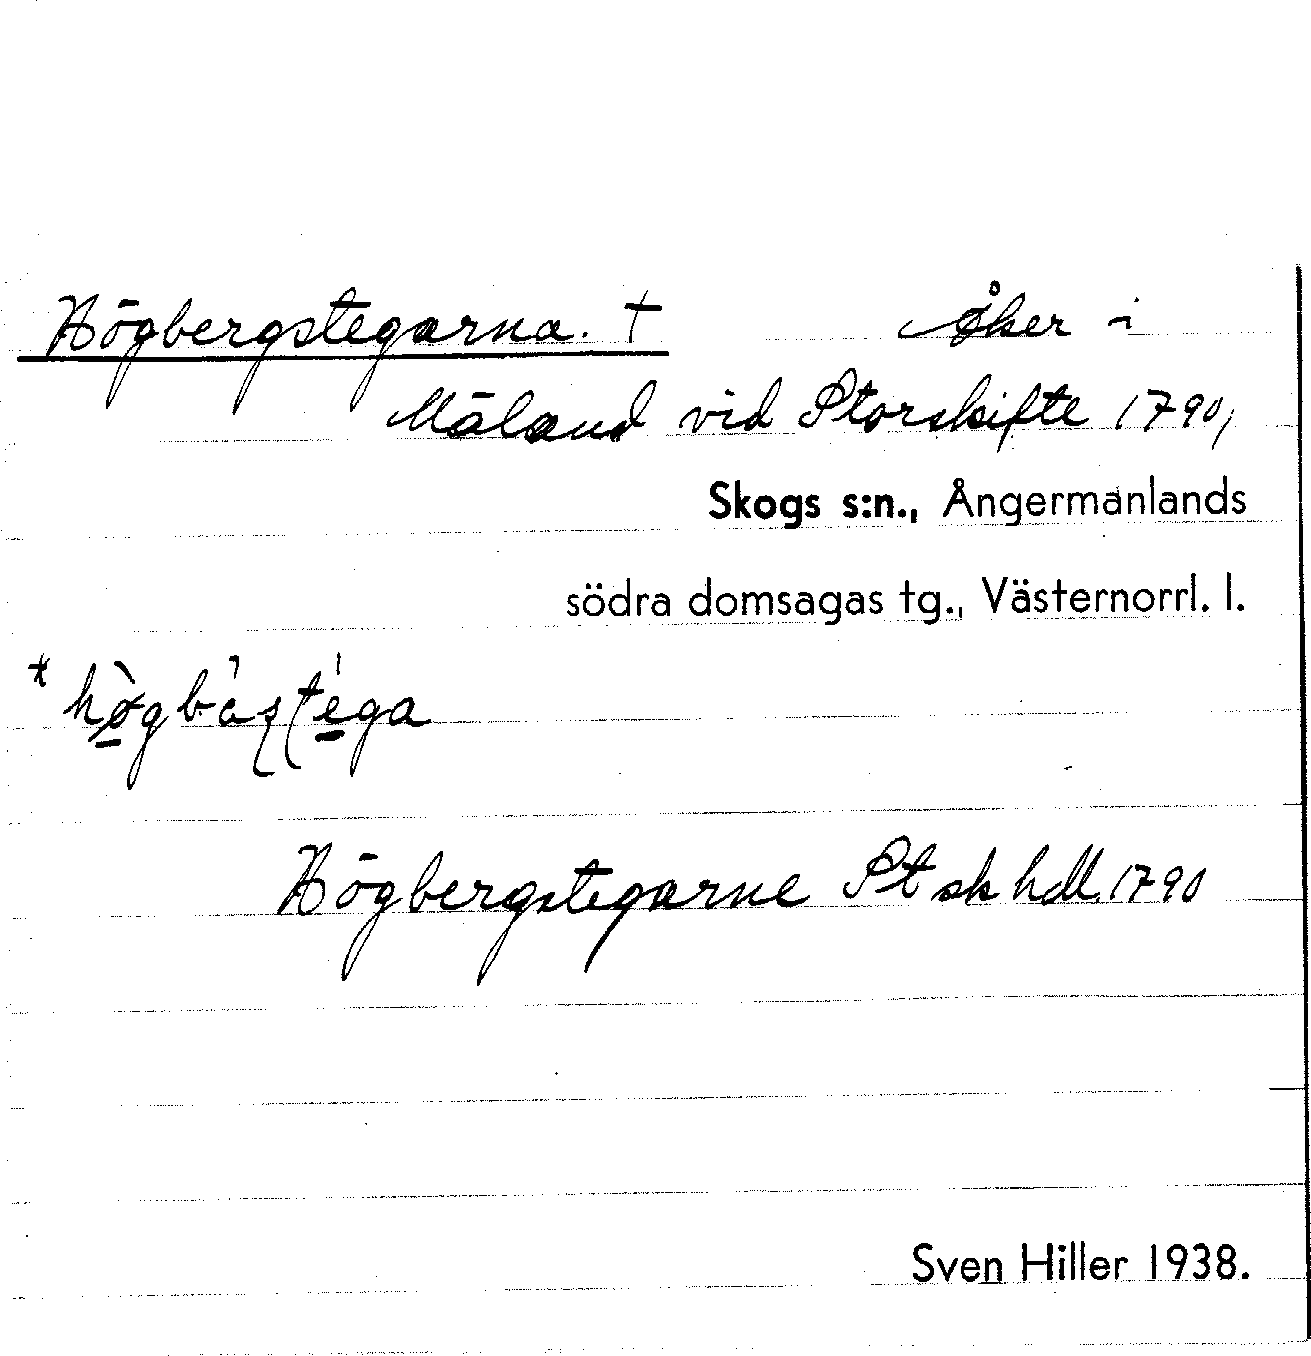 Högbergstegarna. † Åker i
Mäland vid Storskifte 1790,
Skogs s:n., Ångermanlands
södra domsagas tg., Västernorrl. l.
Högbergstegarne St sk hdl 1790
Sven Hiller 1938.